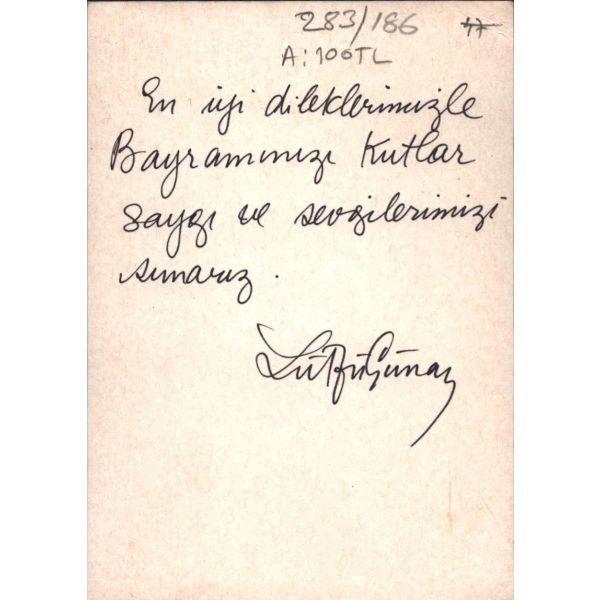 283/186 47
A: 100TL
En iyi dileklerimizle
Bayramınızı Kutlar
saygı ve sevgilerimizi
sunarız.
Lütfü Günay